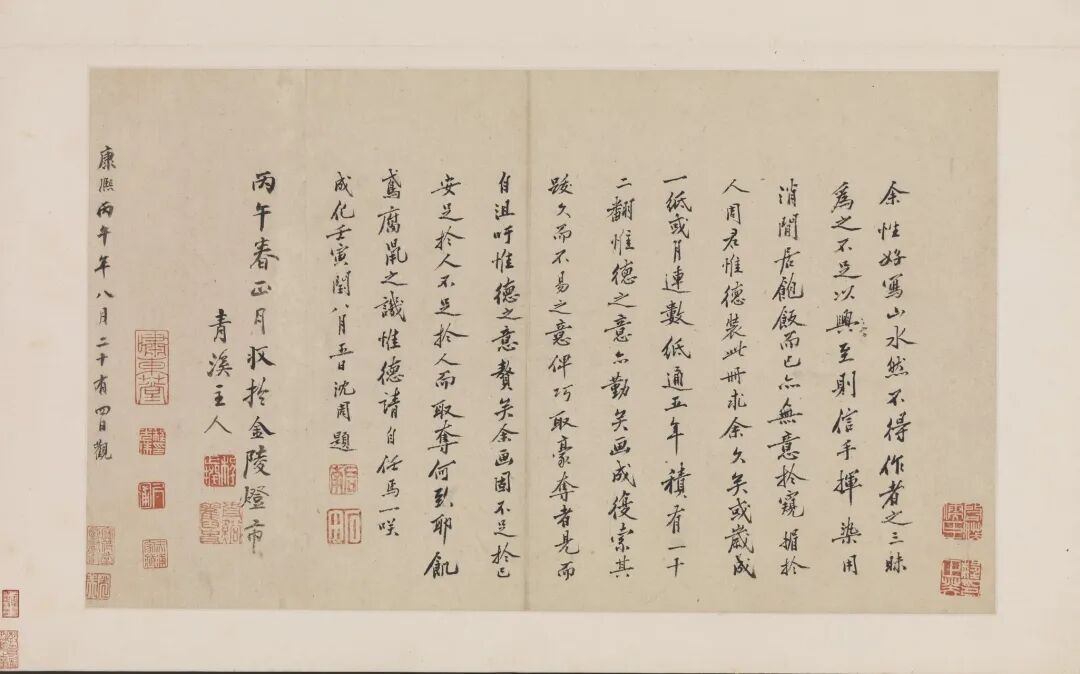 余性好寫山水然不得作者之三昧
爲之不足以興至則信手揮染用
消閒居飽飯而已亦無意於窺媚於
人周君惟德裝此冊求余久矣或歲成
一紙或月連數紙通五年積有一十
二翻惟德之意亦勤矣画成復索其
跋久而不易之意俾巧取豪奪者見而
自沮吁惟德之意贅矣余画固不足於己
安足於人不足於人而取奪何致耶飢
鳶腐鼠之譏惟德請自任焉一咲
成化壬寅閏八月五日沈周題
丙午春正月收於金陵燈市
青溪主人
康熙丙午年八月二十有四日觀